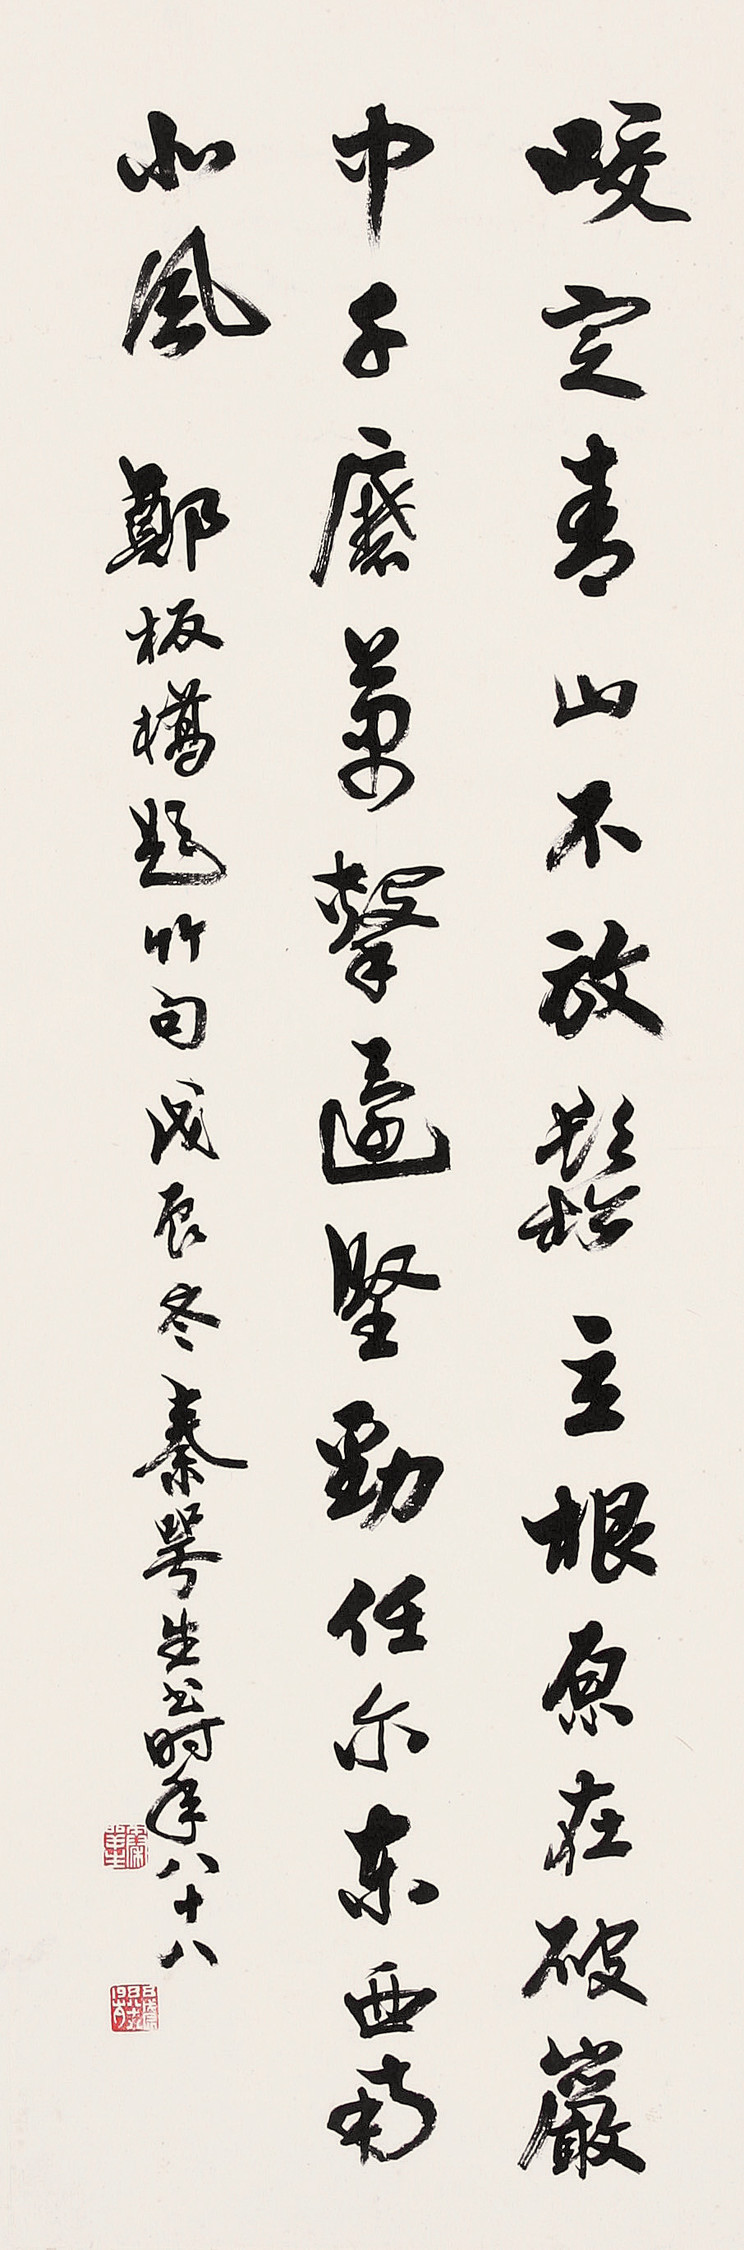 咬定青山不放鬆主根原在破巖
中千磨萬擊還堅勁任尔东西南
北風 鄭板橋題竹句戊辰冬秦咢生書時年八十八